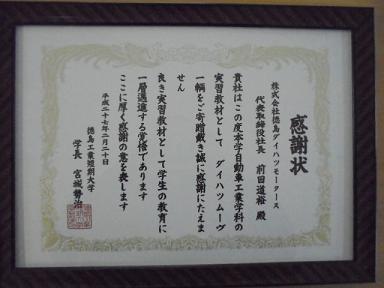 感謝状
株式会社徳島ダイハツモータース
代表取締役社長 前田道裕 殿
貴社はこの度本学自動車工業学科の
実習教材として ダイハツムーヴ
一輌をご寄贈戴き誠に感謝にたえま
せん
良き実習教材として学生の教育に
一層邁進する覚悟であります
ここに厚く感謝の意を表します
平成二十七年二月二十日
徳島工業短期大学
学長 宮城勢治